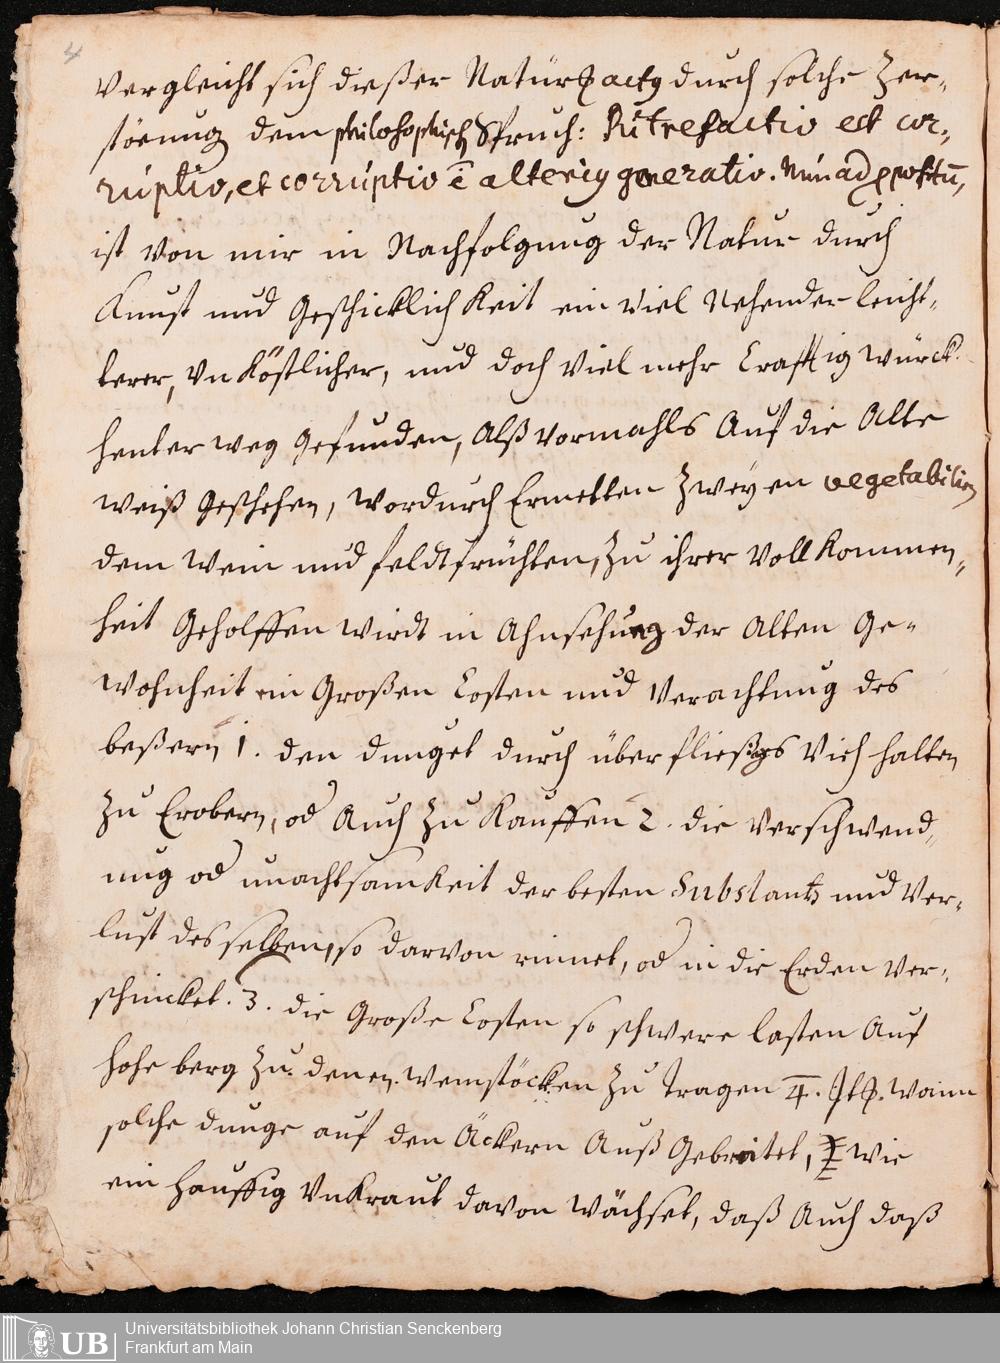 4
Vergleicht sich dießer Natur actq durch solche Zer„
störung dem philosophisch Spruch: Putrefactio est cor„
ruptio, et corruptio ē alteriq generatio. Nun ad ppositū,
ist Von mir in Nachfolgung der Natur durch
Kunst und Geschicklich Keit ein Viel Nehender leich„
terer, Vnköstlicher, und doch Viel mehr Crafftig würck
henter weg Gefunden, Alß Vormahls Auf die Alte
weiß Geschehen, wordurch Ermelten Zweÿen vegetabilien
dem Wein und feldtfrüchten, Zu ihrer Voll Kommen„
heit Geholffen wirdt in Ahnsehung der Alten Ge„
wohnheit ein Großen Costen und Verachtung des
beßern 1. den dunget durch überfließigs Vieh halten
Zu Erobern, od Auch Zu Kauffen 2. die Verschwend„
ung od unachtsamKeit der besten Substantz und Ver„
lust desselben, so darvon rinnet, od in die Erden Ver„
schincket. 3. die Große Costen so schwere lasten Auf
hohe berg Zu denen Weinstöcken Zu Tragen 4. Wann
solche dunge auf den Äckern Auß Gebreitet, wie
ein hauffig VnKraut davon Wächset, daß Auch daß
UB Universitätsbibliothek Johann Christian Senckenberg
Frankfurt am Main